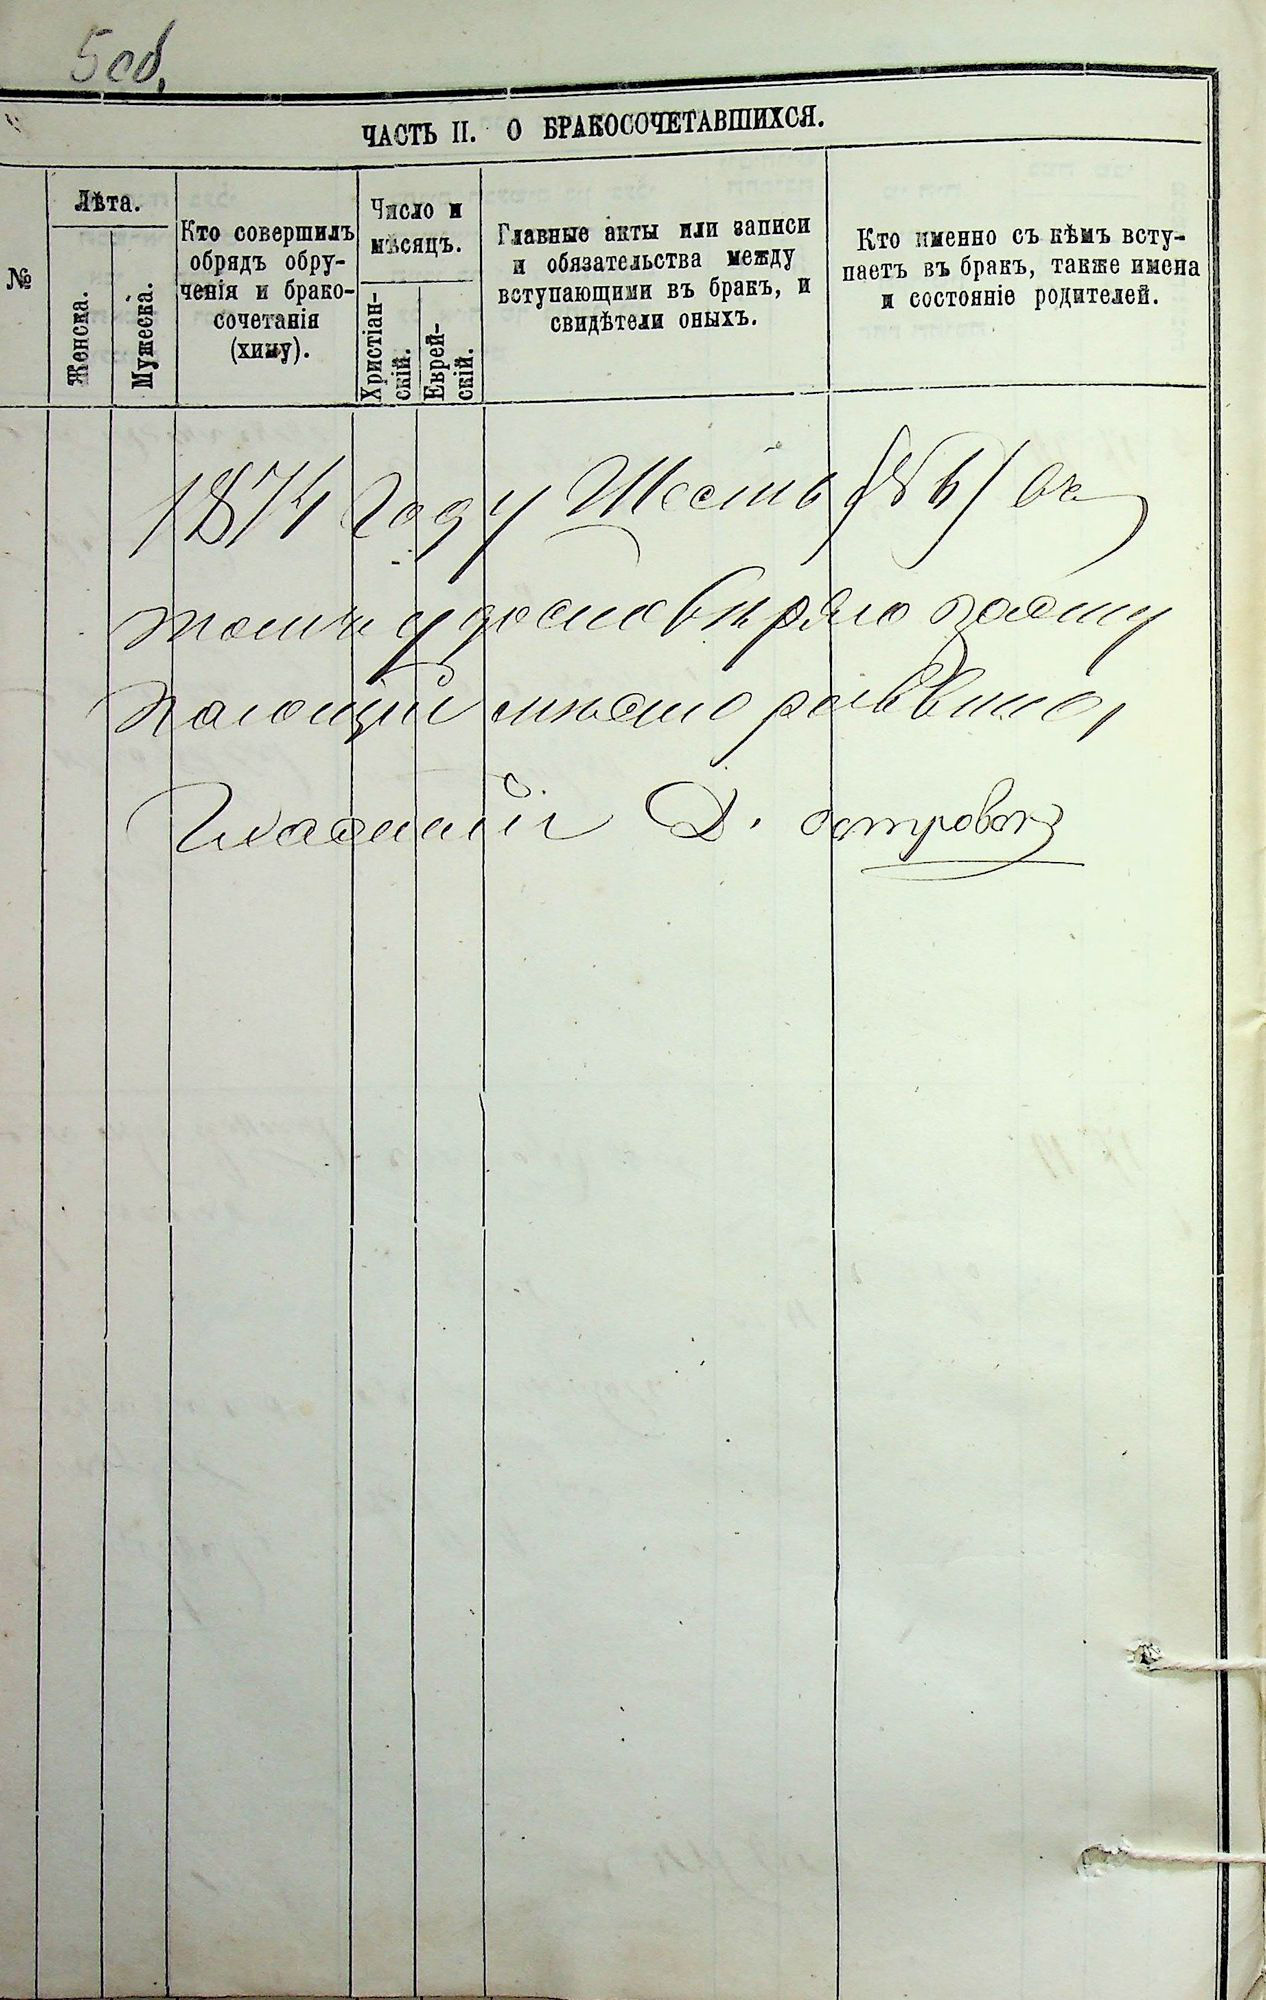 5 об.
ЧАСТЬ II. О БРАКОСОЧЕТАВШИХСЯ.
№
Лѣта.
Женска.
Мужеска.
Кто совершилъ
обрядъ обру-
ченія и брако-
сочетанія
(хипу).
Число и
мѣсяцъ.
Христіан-
скій.
Еврей-
скій.
Главные акты или записи
и обязательства между
вступающими въ бракъ, и
свидѣтели оныхъ.
Кто именно съ кѣмъ всту-
паетъ въ бракъ, также имена
и состояніе родителей.
1874 году Шесть (№ 6) въ
томъ удостовѣряю заступ
пающій мѣсто раввина,
Гласный Д. Островск